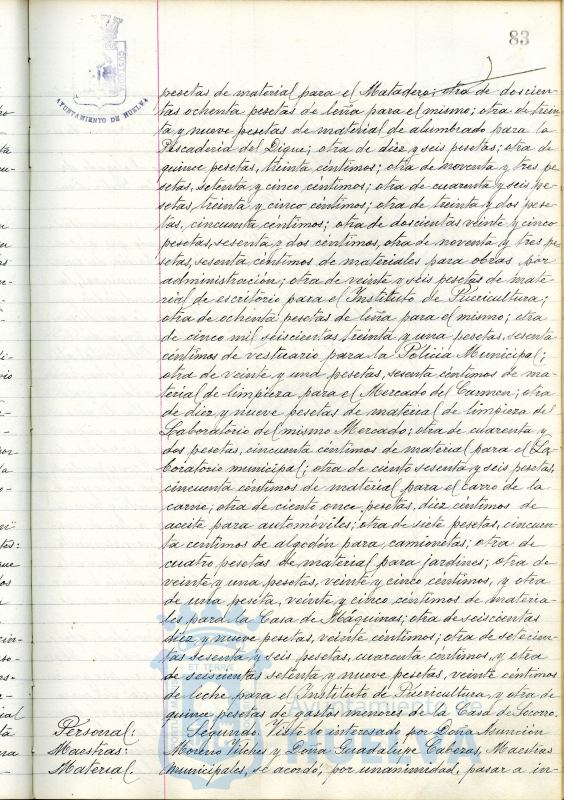 83
AYUNTAMIENTO DE HUELVA
pesetas de material para el Matadero; otra de doscien-
tas ochenta pesetas de leña para el mismo; otra de trein-
ta y nueve pesetas de material de alumbrado para la
Pescadería del Dique; otra de diez y seis pesetas; otra de
quince pesetas, treinta céntimos; otra de noventa y tres pe-
setas, setenta y cinco céntimos; otra de cuarenta y seis pe-
setas, treinta y cinco céntimos; otra de treinta y dos pese-
tas, cincuenta céntimos; otra de doscientas veinte y cinco
pesetas, sesenta y dos céntimos, otra de noventa y tres pe-
setas, sesenta céntimos de materiales para obras por
administración; otra de veinte y seis pesetas de mate-
rial de escritorio para el Instituto de Puericultura;
otra de ochenta pesetas de leña para el mismo; otra
de cinco mil seiscientas treinta y una pesetas, sesenta
céntimos de vestuario para la Policía Municipal;
otra de veinte y una pesetas, sesenta céntimos de ma-
terial de limpieza para el Mercado del Carmen; otra
de diez y nueve pesetas de material de limpieza del
Laboratorio del mismo Mercado; otra de cuarenta y
dos pesetas, cincuenta céntimos de material para el La-
boratorio municipal; otra de ciento sesenta y seis pesetas,
cincuenta céntimos de material para el carro de la
carne; otra de ciento once pesetas, diez céntimos de
aceite para automóviles; otra de siete pesetas, cincuen-
ta céntimos de algodón para camionetas; otra de
cuatro pesetas de material para jardines; otra de
veinte y una pesetas, veinte y cinco céntimos, y otra
de una peseta, veinte y cinco céntimos de materia-
les para la Casa de Máquinas; otra de seiscientas
diez y nueve pesetas, veinte céntimos; otra de setecien-
tas sesenta y seis pesetas, cuarenta céntimos, y otra
de seiscientas setenta y nueve pesetas, veinte céntimos
de leche para el Instituto de Puericultura, y otra de
quince pesetas de gastos menores de la Casa de Socorro.
Personal: Segundo. Visto lo interesado por Doña Asunción
Maestras: Moreno Vilches y Doña Guadalupe Cabezas, Maestras
Material. municipales, se acordó, por unanimidad, pasar a in-
Ayuntamiento de
HUELVA